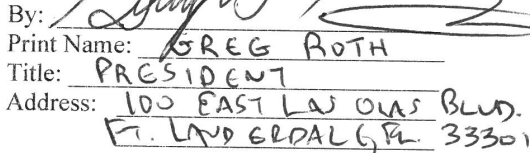 By:
Print Name: GREG ROTH
Title: PRESIDENT
Address: 100 EAST LAS OLAS BLVD.
FT. LAUDERDALE, FL. 33301